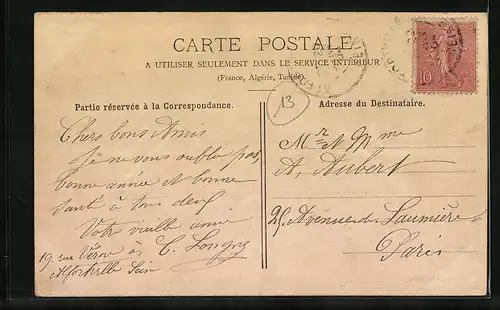 CARTE POSTALE
A UTILISER SEULEMENT DANS LE SERVICE INTÉRIEUR
(France, Algérie, Tunisie)
13
Partie réservée à la Correspondance.
Chers bons Amis
Je ne vous oublie pas,
bonne année et bonne
santé à tous deux
Votre vieille amie
C. Longny
19, rue Véron à
Alfortville Seine
Adresse du Destinataire.
Mr et Mme
A. Aubert
25, Avenue de Laumière
Paris
10